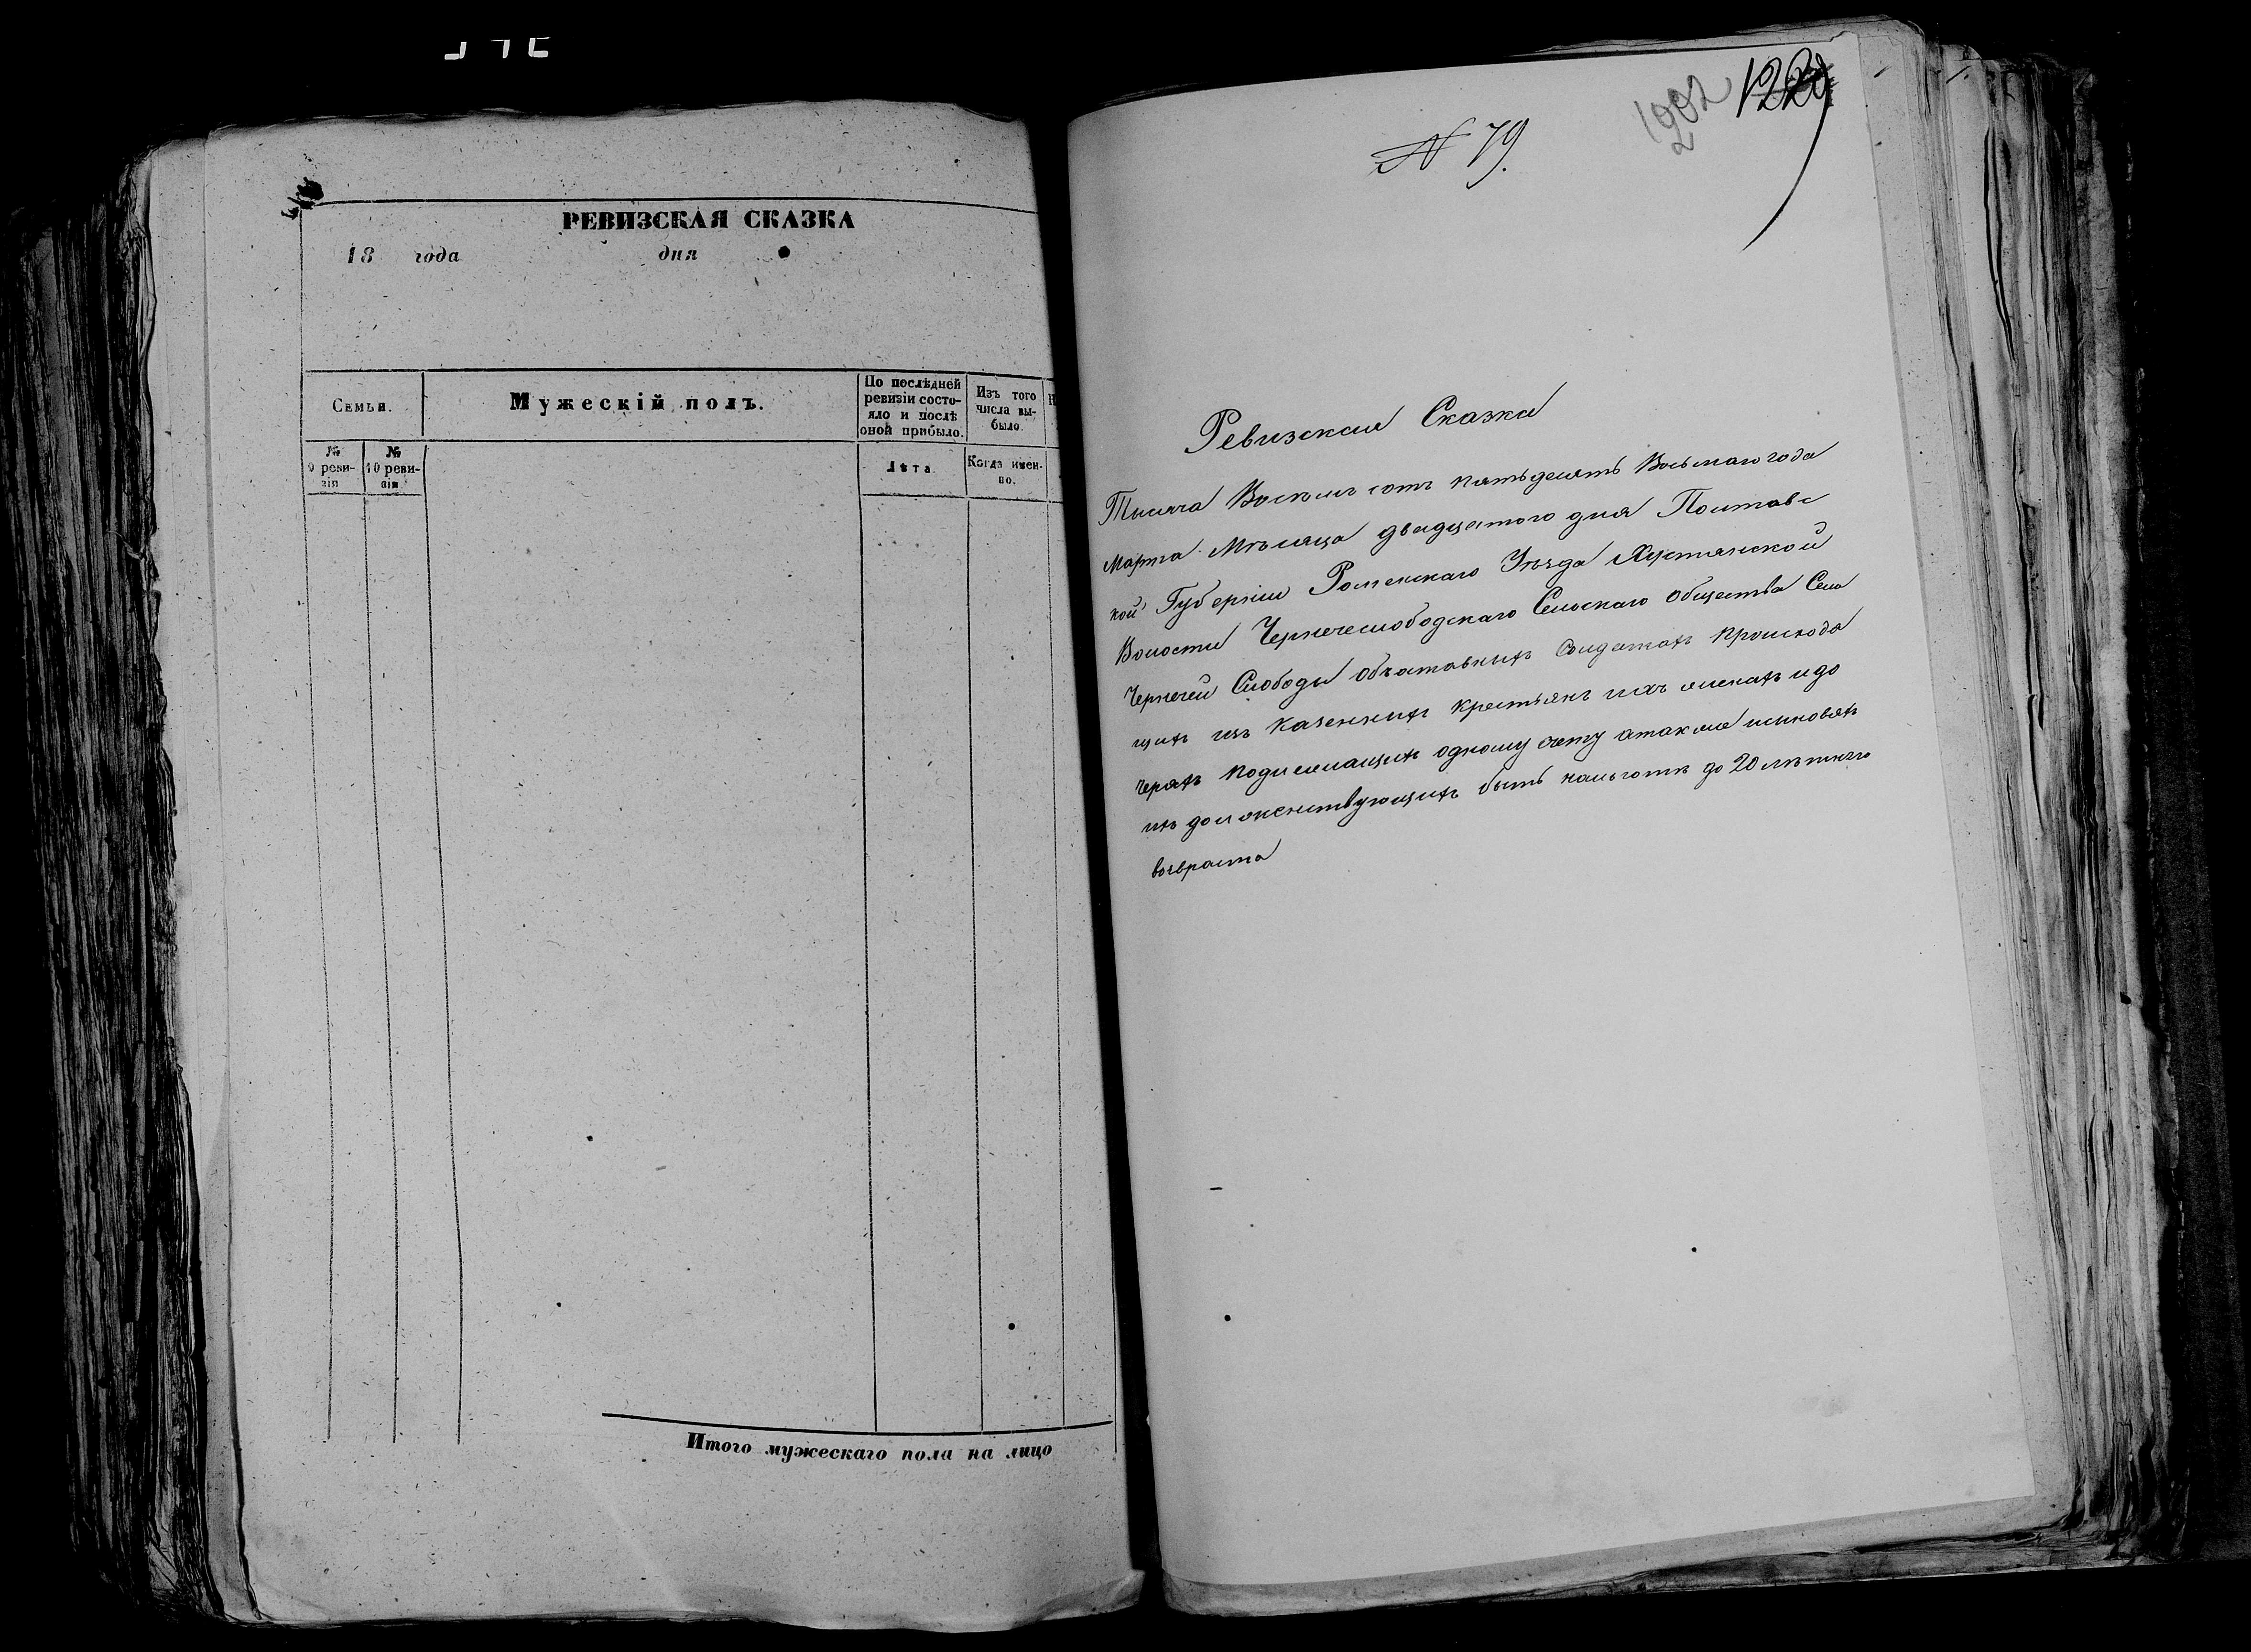 РЕВИЗСКАЯ СКАЗКА
18 года дня
Семьи.
Мужескій полъ.
По послѣдней
ревизіи состо-
яло и послѣ
оной прибыло.
Изъ того
числа вы-
было.
№
9 реви-
зіи
№
10 реви-
зіи
Лѣта.
Когда имен-
но.
Итого мужескаго пола на лицо
№ 79.
1202
Ревизская Сказка
Тысяча Восемь сотъ пятьдесятъ Восьмаго года
Марта Мѣсяца двадцатого дня Полтавс
кой Губерніи Роменскаго Уѣзда Хустянской
Волости Чернечеслободскаго Сельскаго общества Села
Чернечей Слободы объотавныхъ Солдатахъ происходя
щихъ изъ Казенныхъ крестьянъ ихъ женахъ и до
черяхъ подлежащихъ одному счету атакже сыновьяхъ
ихъ долженствующихъ быть нальготѣ до 20 лѣтняго
возвраста